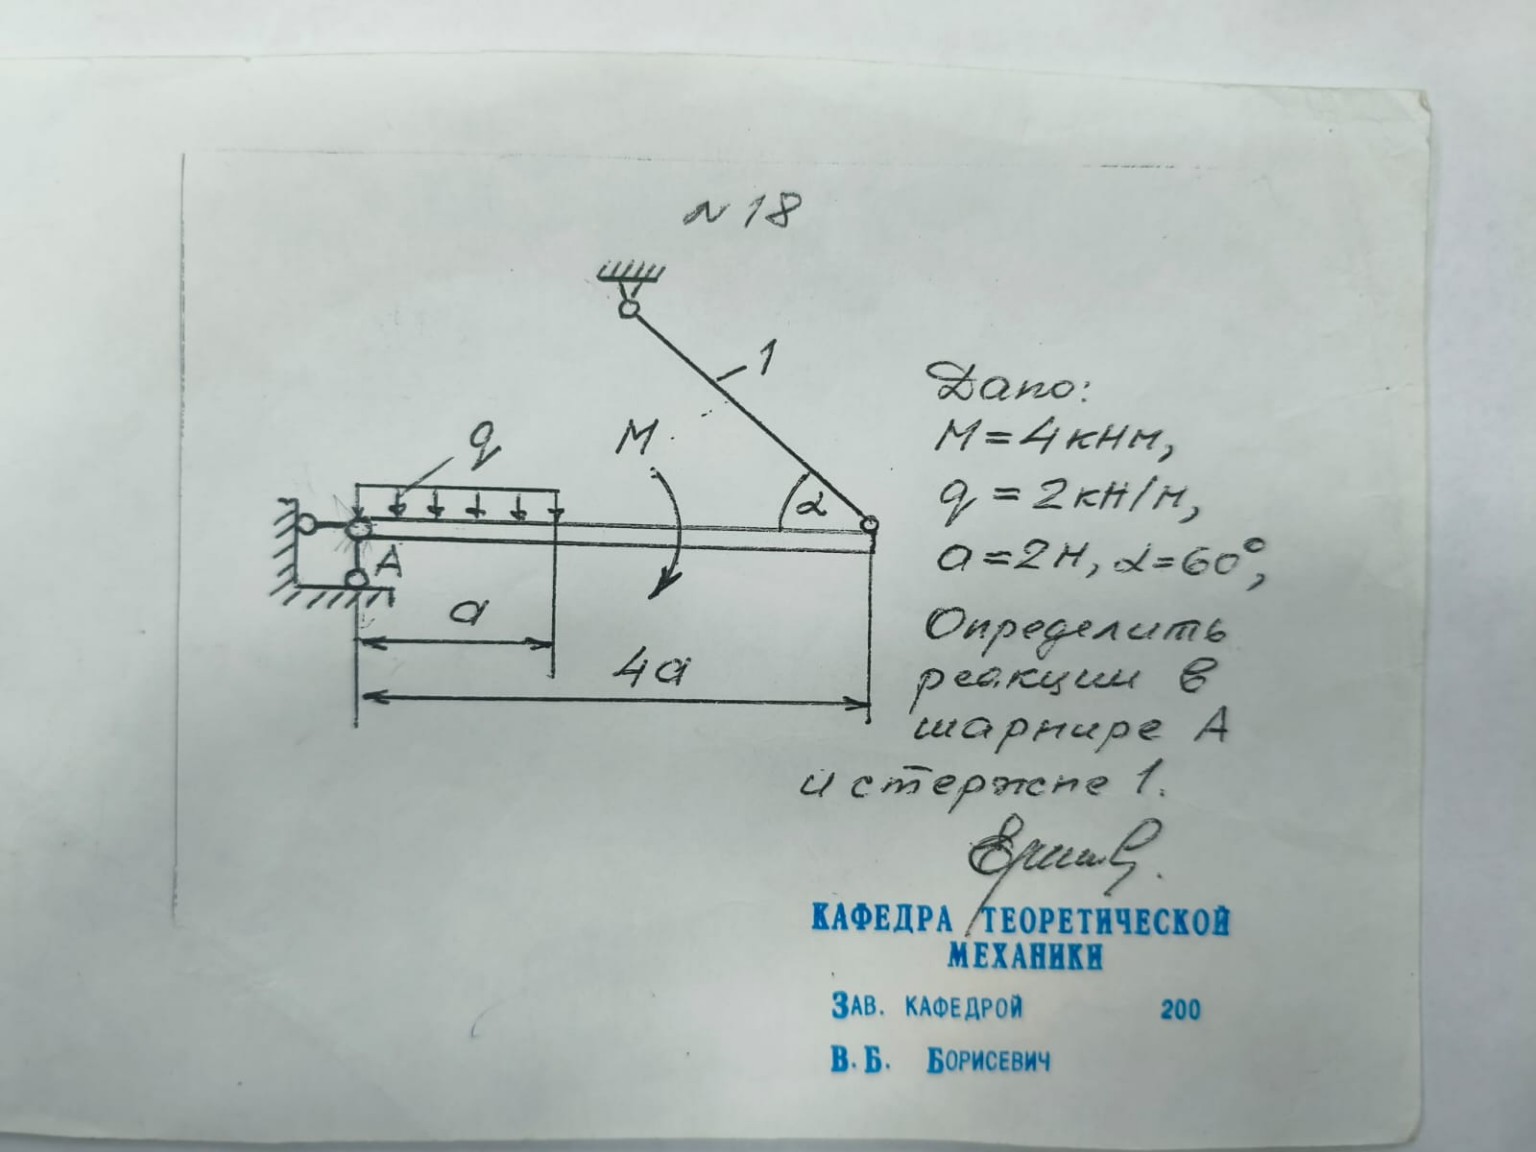 № 18
1
q
M
α
A
a
4a
Дано:
M = 4 кНм,
q = 2 кН/м,
a = 2 м, α = 60°,
Определить
реакции в
шарнире А
и стержне 1.
КАФЕДРА ТЕОРЕТИЧЕСКОЙ
МЕХАНИКИ
ЗАВ. КАФЕДРОЙ 200
В. Б. БОРИСЕВИЧ